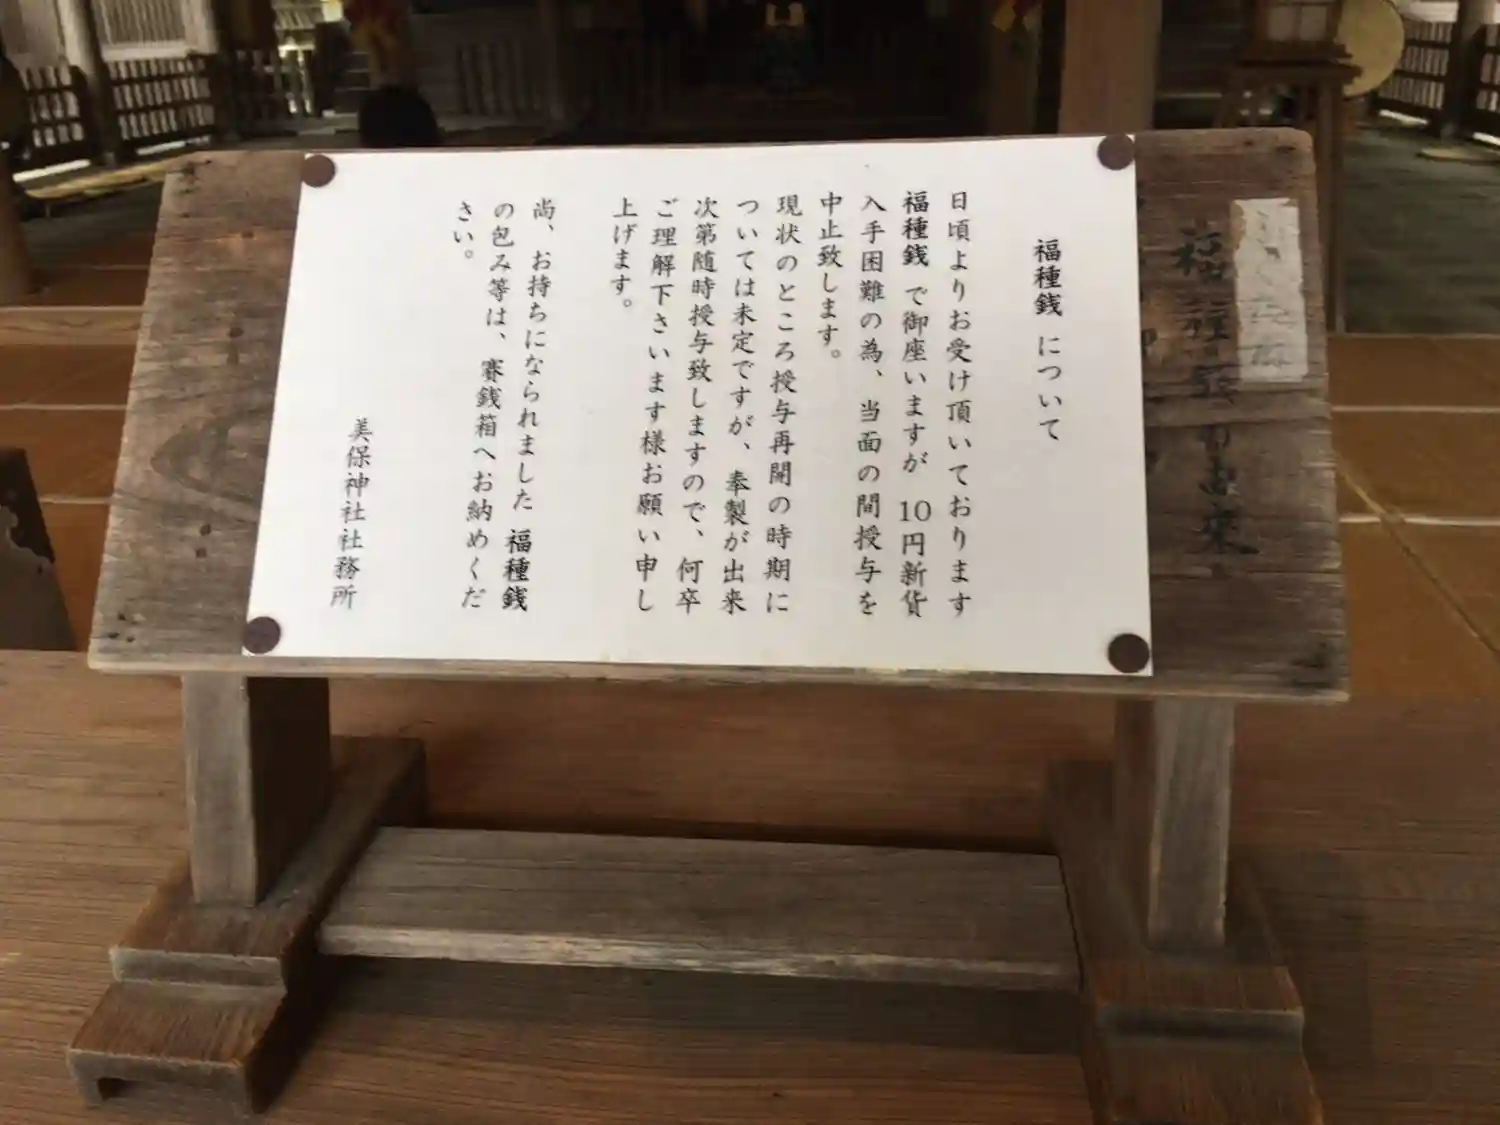 福種銭 について
日頃よりお受け頂いております
福種銭 で御座いますが 10円新貨
入手困難の為、当面の間授与を
中止致します。
現状のところ授与再開の時期に
ついては未定ですが、奉製が出来
次第随時授与致しますので、何卒
ご理解下さいます様お願い申し
上げます。
尚、お持ちになられました 福種銭
の包み等は、賽銭箱へお納めくだ
さい。
美保神社社務所